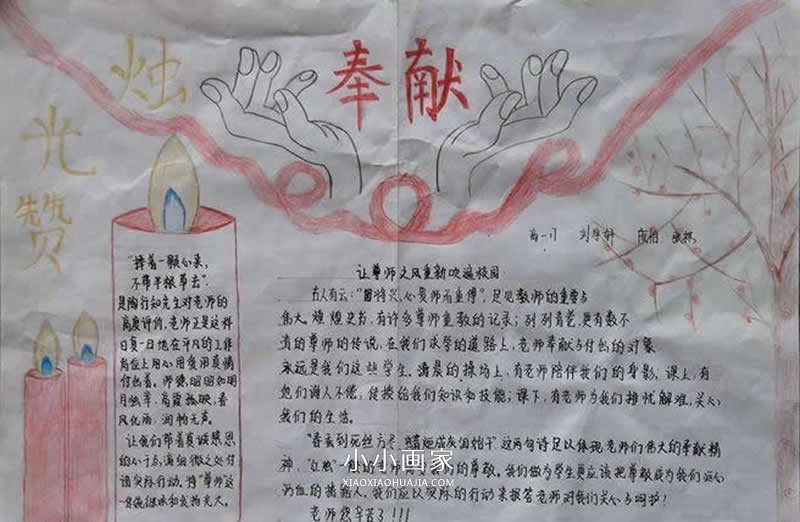 烛
光
赞
奉献
刘学轩
"捧着一颗心来,
不带半根草去".
是陶行知先生对老师的
高度评价,老师正是这样
日复一日地在平凡的工作
岗位上用心用爱用真情
付出着。师德昭昭如明
月独举,高霞孤映,春
风化雨,润物无声。
让我们带着真诚感恩
的小于点滴细微之处付
诸实际行动,将"尊师这
一
让尊师之风重新吹遍校园
古人有云:"国将兴,心贵师而重傅",足见教师的重要与
伟大。煌煌史书,有许多尊师重教的记录;列列青艺,更有数不
清的尊师的传说,在我们求学的道路上,老师奉献与付出的对象
永远是我们这些学生。清晨的操场上,有老师陪伴我们的身影,课上,有
他们诲人不倦,传授给我们知识和技能;课下,有老师为我们排忧解难,关心
我们的生活。
"春蚕到死丝方尽,蜡炬成灰泪始干"这两句诗足以体现老师们伟大的奉献精
神,
的尊敬。我们做为学生更应该把尊敬成为我们
我们应以实际的行动来报答老师对我们关心与呵护!
老师您辛苦了!!!
小小画家
XIAOXIAOHUAJIA.COM